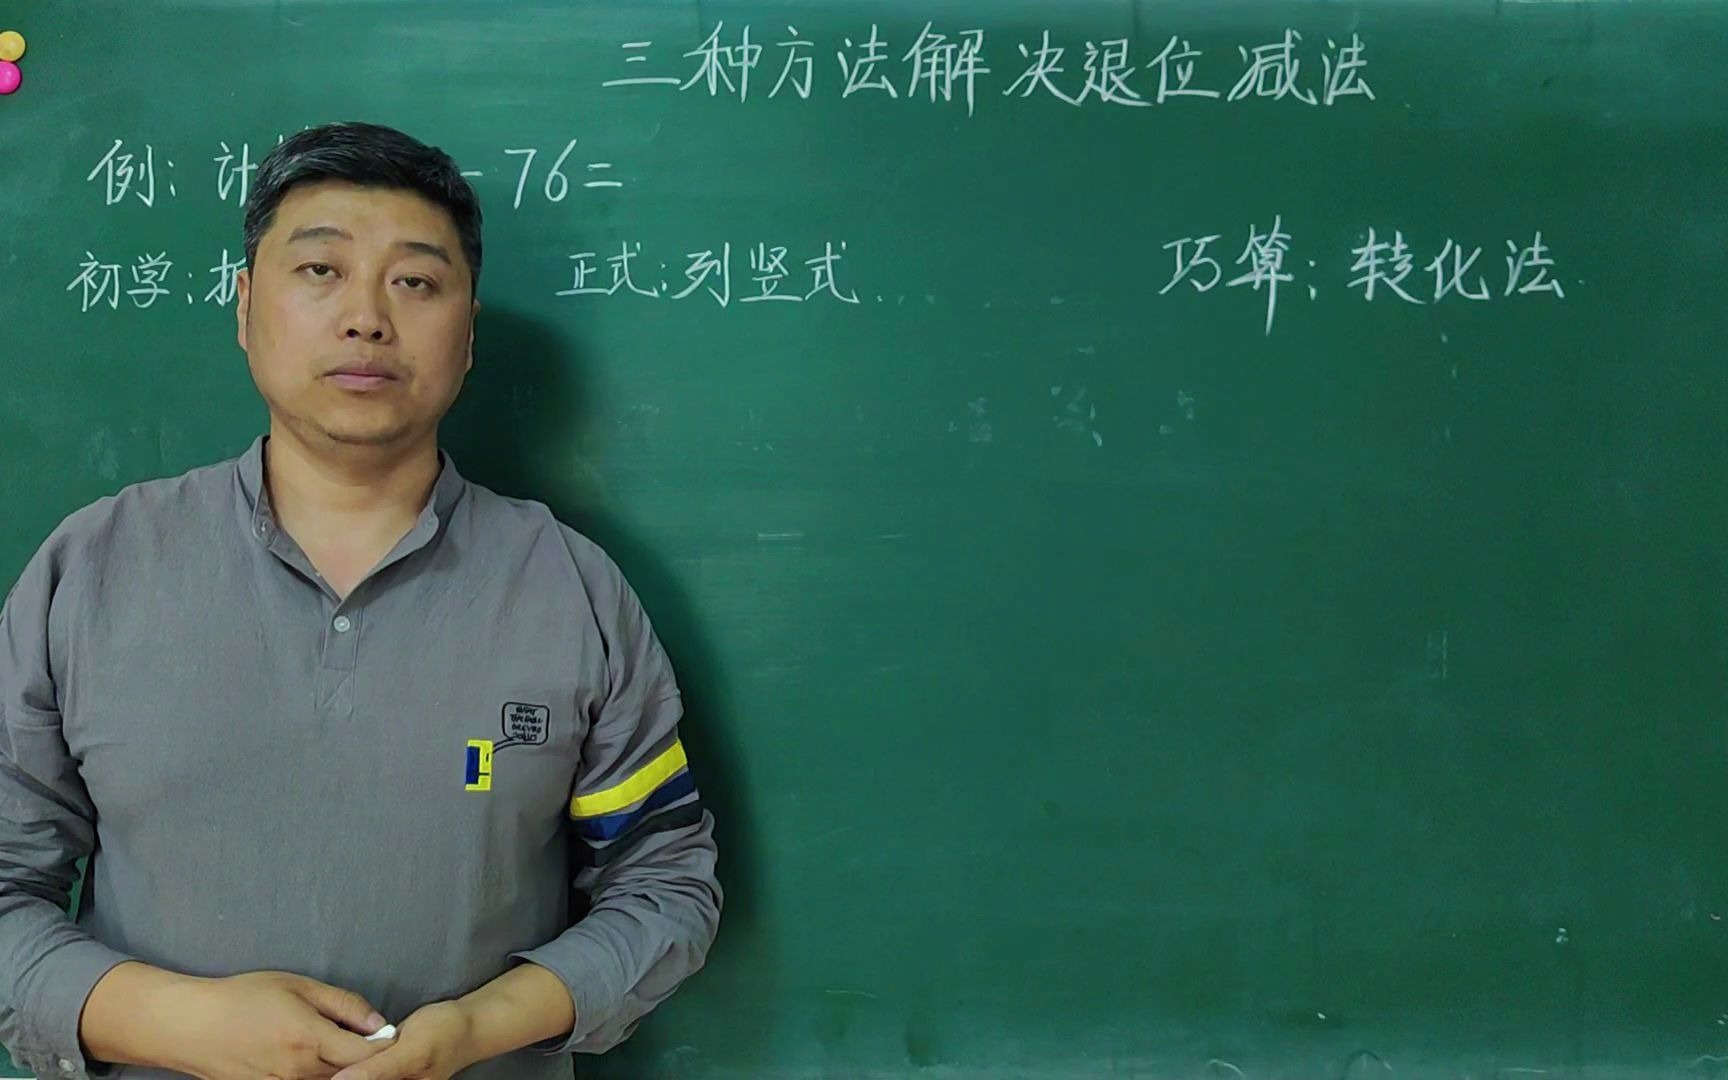 三种方法解决退位减法
例：计 - 76=
初学：拆 正式：列竖式 巧算：转化法